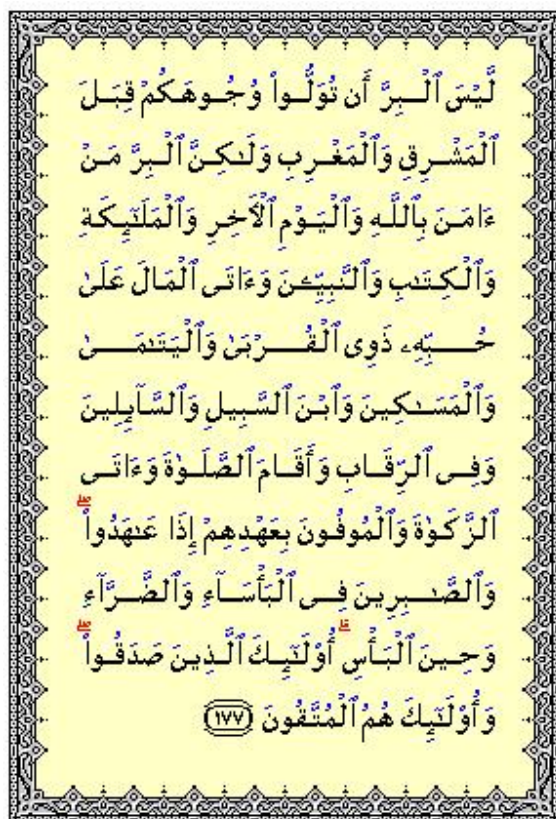 لَّيْسَ ٱلْبِرَّ أَن تُوَلُّوا۟ وُجُوهَكُمْ قِبَلَ
ٱلْمَشْرِقِ وَٱلْمَغْرِبِ وَلَـٰكِنَّ ٱلْبِرَّ مَنْ
ءَامَنَ بِٱللَّهِ وَٱلْيَوْمِ ٱلْـَٔاخِرِ وَٱلْمَلَـٰٓئِكَةِ
وَٱلْكِتَـٰبِ وَٱلنَّبِيِّـۧنَ وَءَاتَى ٱلْمَالَ عَلَىٰ
حُبِّهِۦ ذَوِى ٱلْقُرْبَىٰ وَٱلْيَتَـٰمَىٰ
وَٱلْمَسَـٰكِينَ وَٱبْنَ ٱلسَّبِيلِ وَٱلسَّآئِلِينَ
وَفِى ٱلرِّقَابِ وَأَقَامَ ٱلصَّلَوٰةَ وَءَاتَى
ٱلزَّكَوٰةَ وَٱلْمُوفُونَ بِعَهْدِهِمْ إِذَا عَـٰهَدُوا۟ ۖ
وَٱلصَّـٰبِرِينَ فِى ٱلْبَأْسَآءِ وَٱلضَّرَّآءِ
وَحِينَ ٱلْبَأْسِ ۗ أُو۟لَـٰٓئِكَ ٱلَّذِينَ صَدَقُوا۟ ۖ
وَأُو۟لَـٰٓئِكَ هُمُ ٱلْمُتَّقُونَ ﴿١٧٧﴾